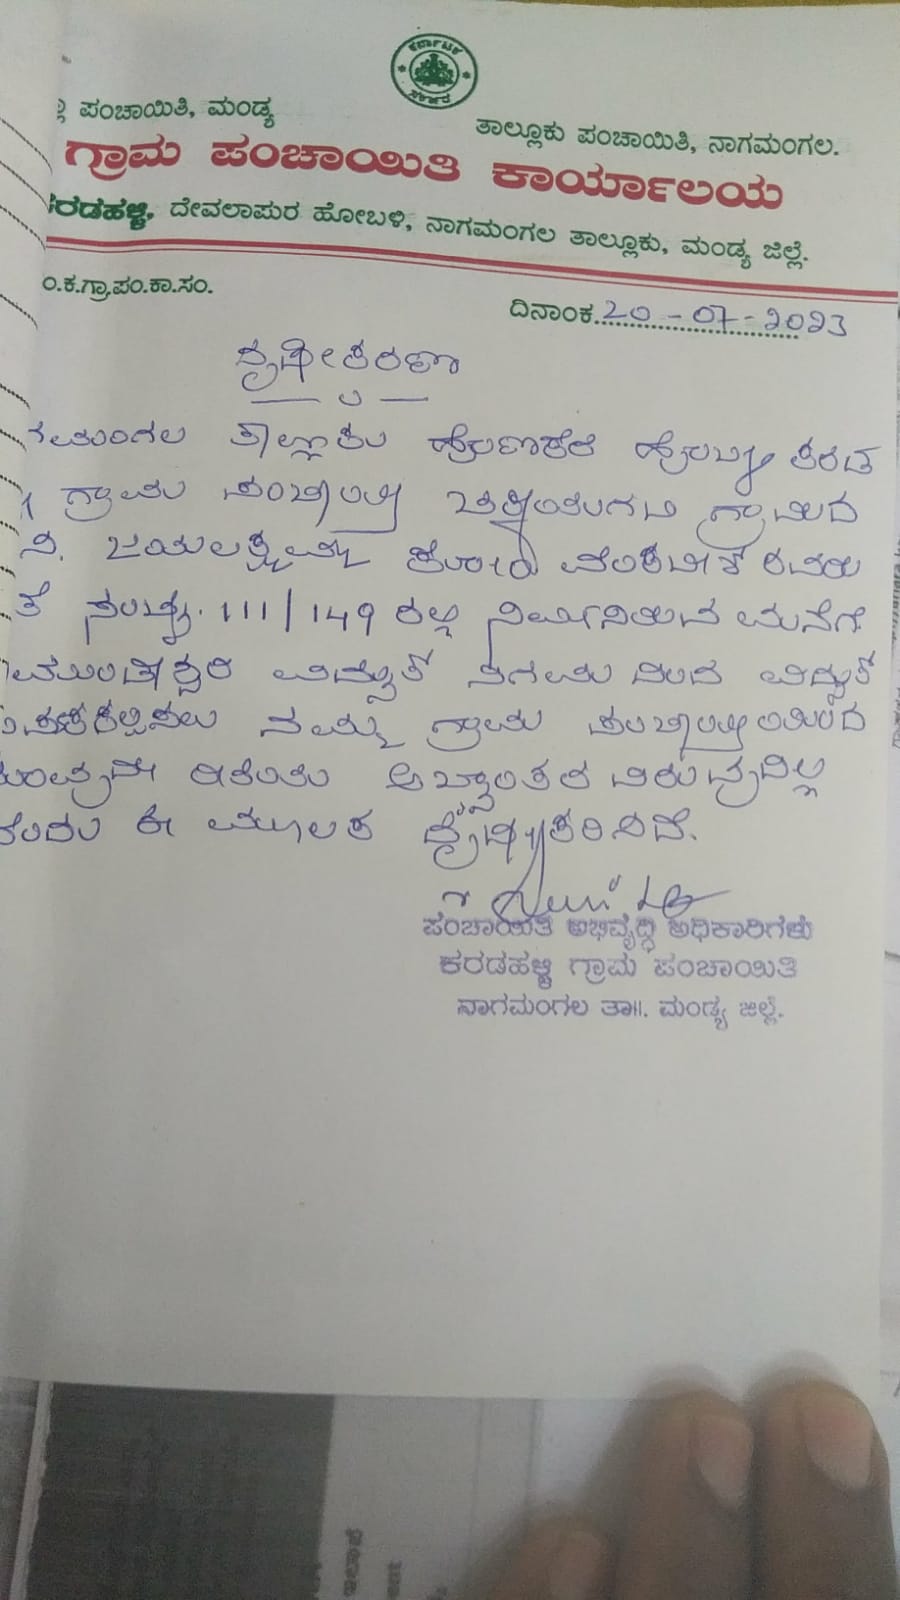 ಕರ್ನಾಟಕ ಸರ್ಕಾರ
ಪಂಚಾಯಿತಿ, ಮಂಡ್ಯ
ತಾಲ್ಲೂಕು ಪಂಚಾಯಿತಿ, ನಾಗಮಂಗಲ.
ಗ್ರಾಮ ಪಂಚಾಯಿತಿ ಕಾರ್ಯಾಲಯ
ಕರಡಹಳ್ಳಿ, ದೇವಲಾಪುರ ಹೋಬಳಿ, ನಾಗಮಂಗಲ ತಾಲ್ಲೂಕು, ಮಂಡ್ಯ ಜಿಲ್ಲೆ.
ಂ.ಕ.ಗ್ರಾ.ಪಂ.ಕಾ.ಸಂ.
ದಿನಾಂಕ 20-07-2023
ದೃಢೀಕರಣ
ತಾಲ್ಲೂಕು ಹೋಬಳಿ ಕರಡ
ಗ್ರಾಮ ಪಂಚಾಯ್ತಿ ಗ್ರಾಮದ
ಜಯಲಕ್ಷ್ಮಮ್ಮ ಕೋಂ ವೆಂಕಟೇಶ ರವರು
ಸಂಖ್ಯೆ. 111/149 ರಲ್ಲಿ ನಿರ್ಮಿಸಿರುವ ಮನೆಗೆ
ವಿದ್ಯುತ್ ನಿಗಮ ದಿಂದ ವಿದ್ಯುತ್
ನಮ್ಮ ಗ್ರಾಮ ಪಂಚಾಯ್ತಿಯಿಂದ
ಯಾವುದೇ ರೀತಿಯ ಅಭ್ಯಂತರ ವಿರುವುದಿಲ್ಲ
ಎಂದು ಈ ಮೂಲಕ ದೃಢೀಕರಿಸಿದೆ.
ಪಂಚಾಯಿತಿ ಅಭಿವೃದ್ಧಿ ಅಧಿಕಾರಿಗಳು
ಕರಡಹಳ್ಳಿ ಗ್ರಾಮ ಪಂಚಾಯಿತಿ
ನಾಗಮಂಗಲ ತಾ॥. ಮಂಡ್ಯ ಜಿಲ್ಲೆ.